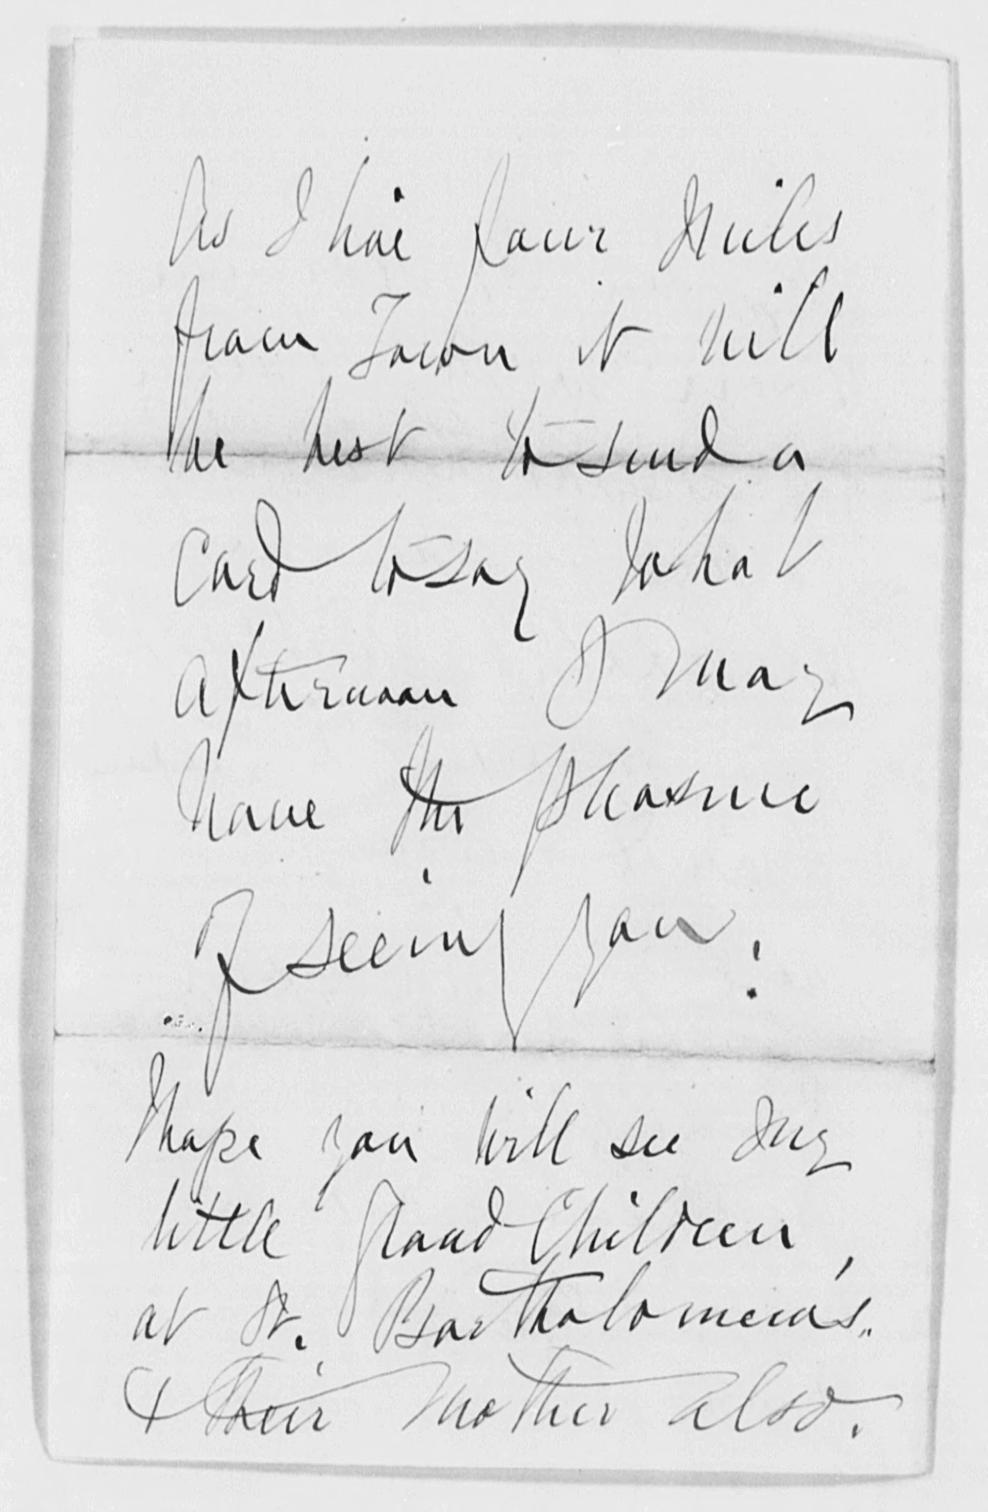 As I live four Miles
from Town it will
be best to send a
Card to say what
afternoon I may
have the pleasure
of seeing you.
I hope you will see my
little Grand Children,
at St. Bartholomew's.
& their Mother also.